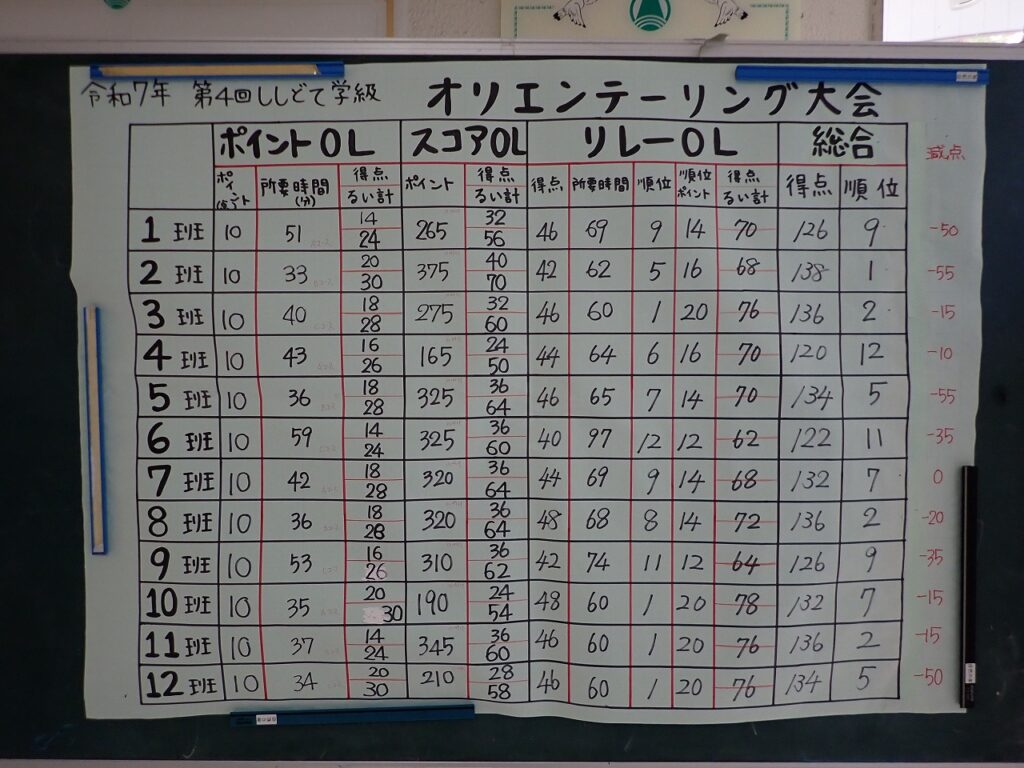 令和7年 第4回ししどて学級 オリエンテーリング大会
ポイントOL スコアOL リレーOL 総合 減点
ポイント(点) 所要時間(分) 得点 るい計 ポイント 得点 るい計 得点 所要時間 順位 順位ポイント 得点 るい計 得点 順位
1班 10 51 14 24 265 32 56 46 69 9 14 70 126 9 -50
2班 10 33 20 30 375 40 70 42 62 5 16 68 138 1 -55
3班 10 40 18 28 275 32 60 46 60 1 20 76 136 2 -15
4班 10 43 16 26 165 24 50 44 64 6 16 70 120 12 -10
5班 10 36 18 28 325 36 64 46 65 7 14 70 134 5 -55
6班 10 59 14 24 325 36 60 40 97 12 12 62 122 11 -35
7班 10 42 18 28 320 36 64 44 69 9 14 68 132 7 0
8班 10 36 18 28 320 36 64 48 68 8 14 72 136 2 -20
9班 10 53 16 26 310 36 62 42 74 11 12 64 126 9 -35
10班 10 35 20 30 190 24 54 48 60 1 20 78 132 7 -15
11班 10 37 14 24 345 36 60 46 60 1 20 76 136 2 -15
12班 10 34 20 30 210 28 58 46 60 1 20 76 134 5 -50